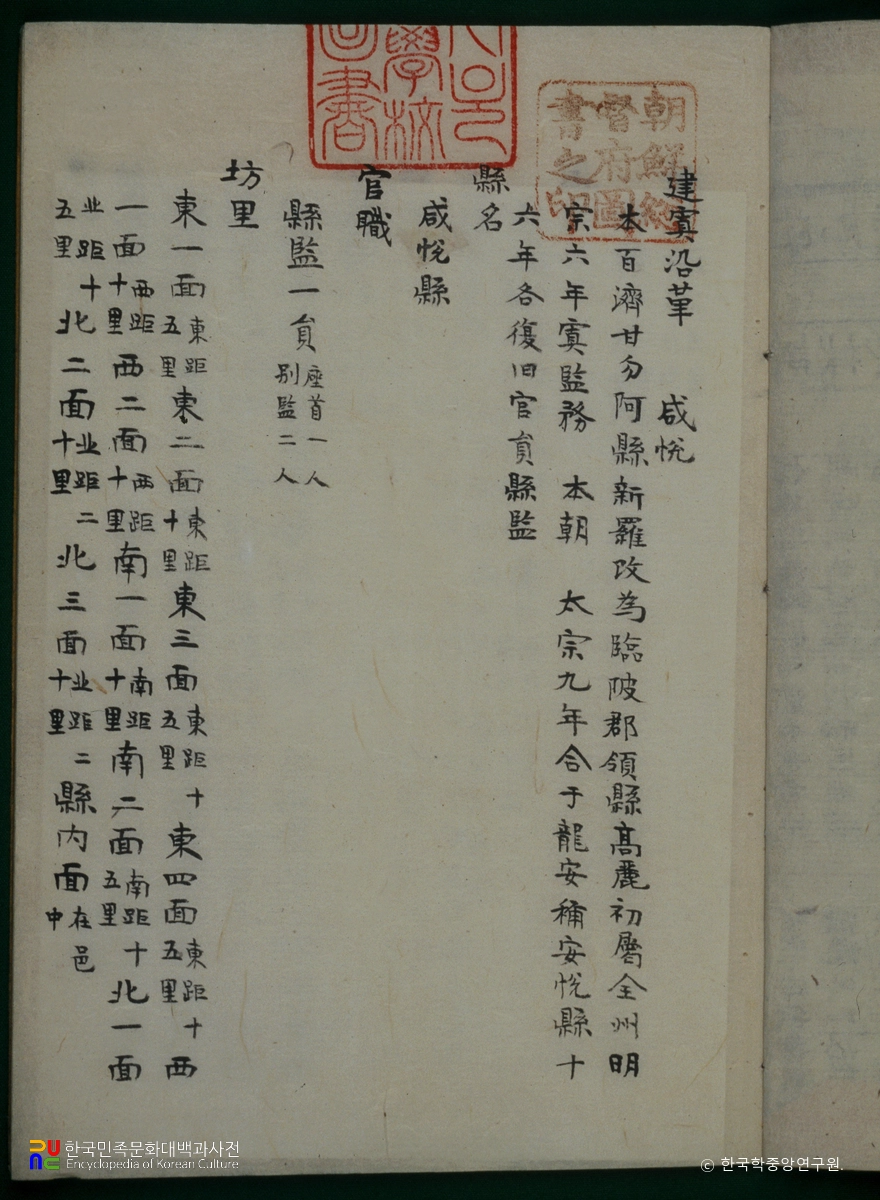 朝鮮總
督府圖
書之印
學校
圖書
建寘沿革 咸悅
本百濟甘勿阿縣新羅改為臨陂郡領縣高麗初屬全州明
宗六年寘監務 本朝 太宗九年合于龍安稱安悅縣十
六年各復旧官員縣監
縣名
咸悅縣
官職
縣監一員 座首一人 别監二人
坊里
東一面 東距五里 東二面 東距十里 東三面 東距十五里 東四面 東距十五里 西
一面 西距十里 西二面 西距十里 南一面 南距十里 南二面 南距十五里 北一面
北距十五里 北二面 北距二十里 北三面 北距二十里 縣内面 在邑中
한국민족문화대백과사전
Encyclopedia of Korean Culture
© 한국학중앙연구원.